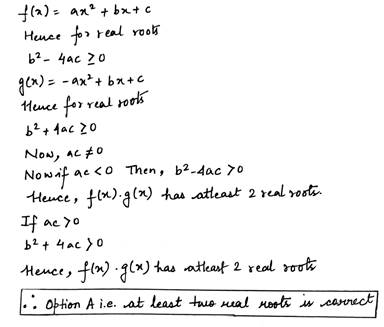 f(x) = ax² + bx + c
Hence for real roots
b² - 4ac ≥ 0
g(x) = -ax² + bx + c
Hence for real roots
b² + 4ac ≥ 0
Now, ac ≠ 0
Now if ac < 0 Then, b² - 4ac > 0
Hence, f(x).g(x) has atleast 2 real roots.
If ac > 0
b² + 4ac > 0
Hence, f(x).g(x) has atleast 2 real roots
∴ Option A i.e. at least two real roots is correct